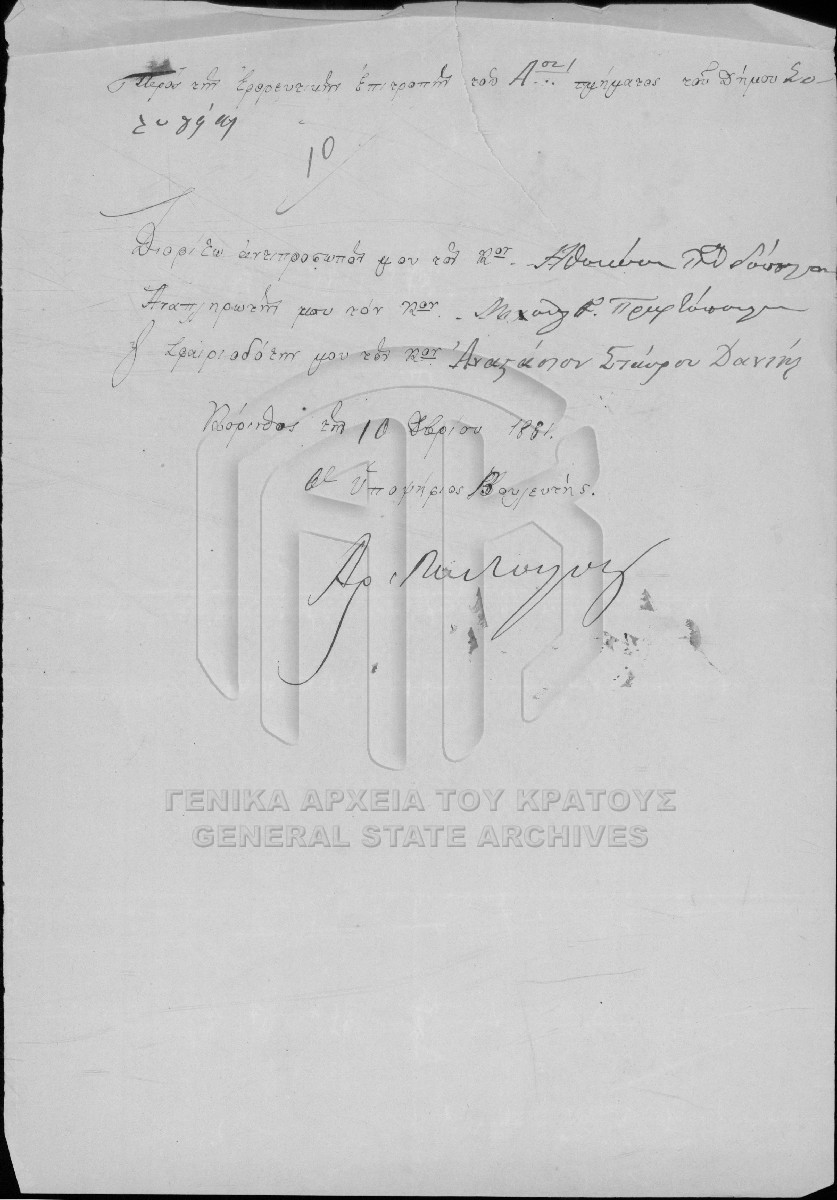 Πρὸς τὴν Ἐφορευτικὴν ἐπιτροπὴν τοῦ Α τμήματος τοῦ Δήμου Σο-
λυγείας
10
Διορίζω ἀντιπρόσωπόν μου τὸν Κον. Ἀθανάσιον
Ἀναπληρωτήν μου τὸν Κον.
Σφαιριοδότην μου τὸν Κον Ἀναστάσιον Σταύρου Δανιήλ
Κόρινθος τῇ 10 Δβρίου 1881.
Ὁ Ὑποψήφιος Βουλευτής.
ΓΕΝΙΚΑ ΑΡΧΕΙΑ ΤΟΥ ΚΡΑΤΟΥΣ
GENERAL STATE ARCHIVES